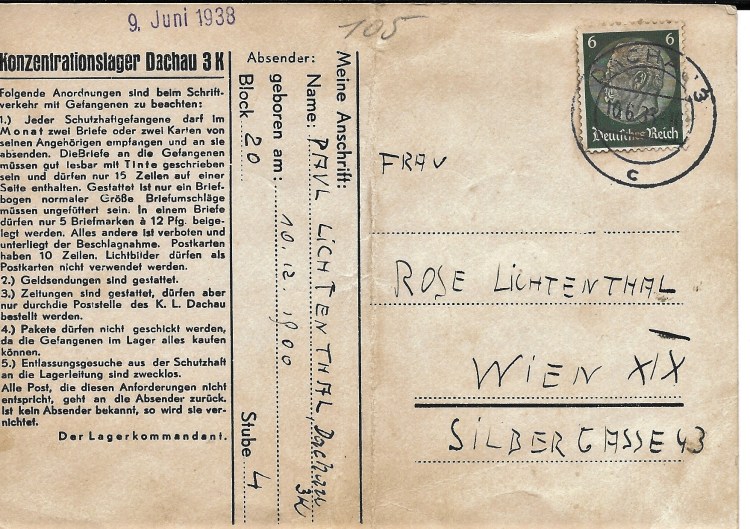 9. Juni 1938
105
Konzentrationslager Dachau 3 K
Folgende Anordnungen sind beim Schrift-
verkehr mit Gefangenen zu beachten:
1.) Jeder Schutzhaftgefangene darf im
Monat zwei Briefe oder zwei Karten von
seinen Angehörigen empfangen und an sie
absenden. DieBriefe an die Gefangenen
müssen gut lesbar mit Tinte geschrieben
sein und dürfen nur 15 Zeilen auf einer
Seite enthalten. Gestattet ist nur ein Brief-
bogen normaler Größe Briefumschläge
müssen ungefüttert sein. In einem Briefe
dürfen nur 5 Briefmarken à 12 Pfg. beige-
legt werden. Alles andere ist verboten und
unterliegt der Beschlagnahme. Postkarten
haben 10 Zeilen. Lichtbilder dürfen als
Postkarten nicht verwendet werden.
2.) Geldsendungen sind gestattet.
3.) Zeitungen sind gestattet, dürfen aber
nur durchdie Poststelle des K. L. Dachau
bestellt werden.
4.) Pakete dürfen nicht geschickt werden,
da die Gefangenen im Lager alles kaufen
können.
5.) Entlassungsgesuche aus der Schutzhaft
an die Lagerleitung sind zwecklos.
Alle Post, die diesen Anforderungen nicht
entspricht, geht an die Absender zurück.
Ist kein Absender bekannt, so wird sie ver-
nichtet.
Der Lagerkommandant.
Absender:
Meine Anschrift:
Name: PAUL LICHTENTHAL, Dachau
3K
geboren am: 10. 12. 1900
Block 20 Stube 4
6 6
Deutsches Reich
DACHAU 3
10.6.38
c
FRAU
ROSE LICHTENTHAL
WIEN XIX
SILBERGASSE 43